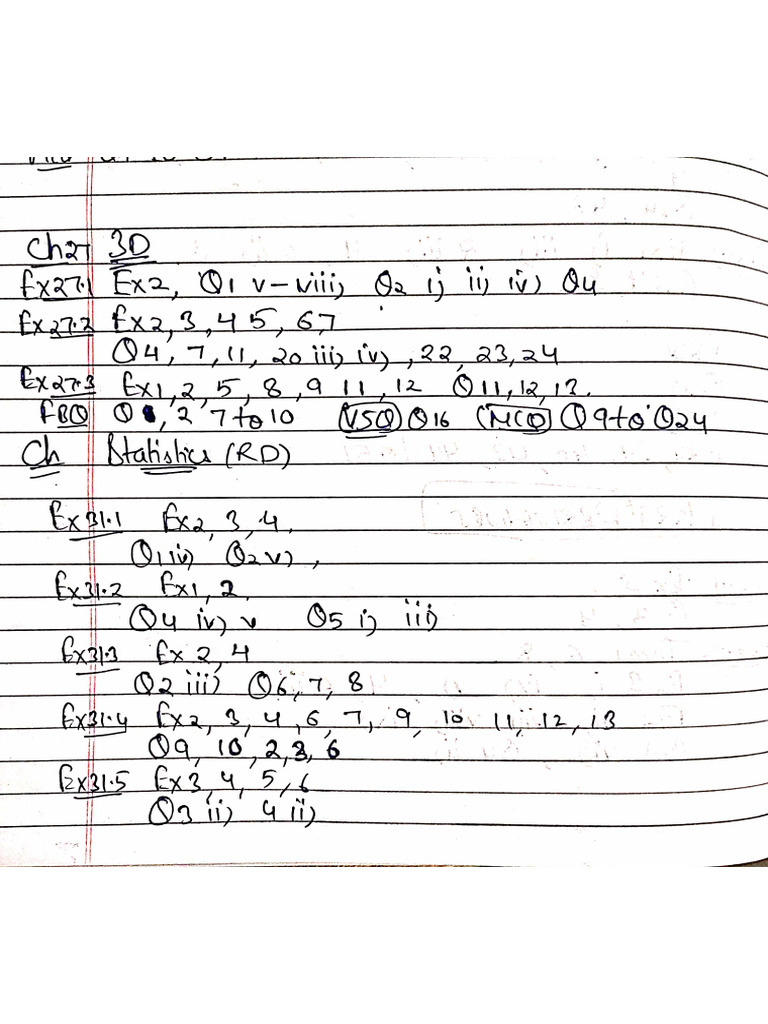 Ch 27 3D
Ex 27.1 Ex 2, Q1 v-viii) Q2 i) ii) iv) Q4
Ex 27.2 Ex 2, 3, 4 5, 6,7
Q4, 7, 11, 20 iii) iv), 22, 23, 24
Ex 27.3 Ex 1, 2, 5, 8, 9 11, 12 Q 11, 12, 13.
FBQ Q , 2 7 to 10 VSQ Q16 MCQ Q 9 to Q24
Ch Statistics (RD)
Ex 31.1 Ex 2, 3, 4.
Q1 iv) Q2 v),
Ex 31.2 Ex 1, 2.
Q4 iv) v Q5 i) iii)
Ex 31.3 Ex 2, 4
Q2 iii) Q6, 7, 8
Ex 31.4 Ex 2, 3, 4, 6, 7, 9, 10 11, 12, 13
Q9, 10, 2, 3, 6
Ex 31.5 Ex 3, 4, 5, 6
Q3 ii) 4 ii)